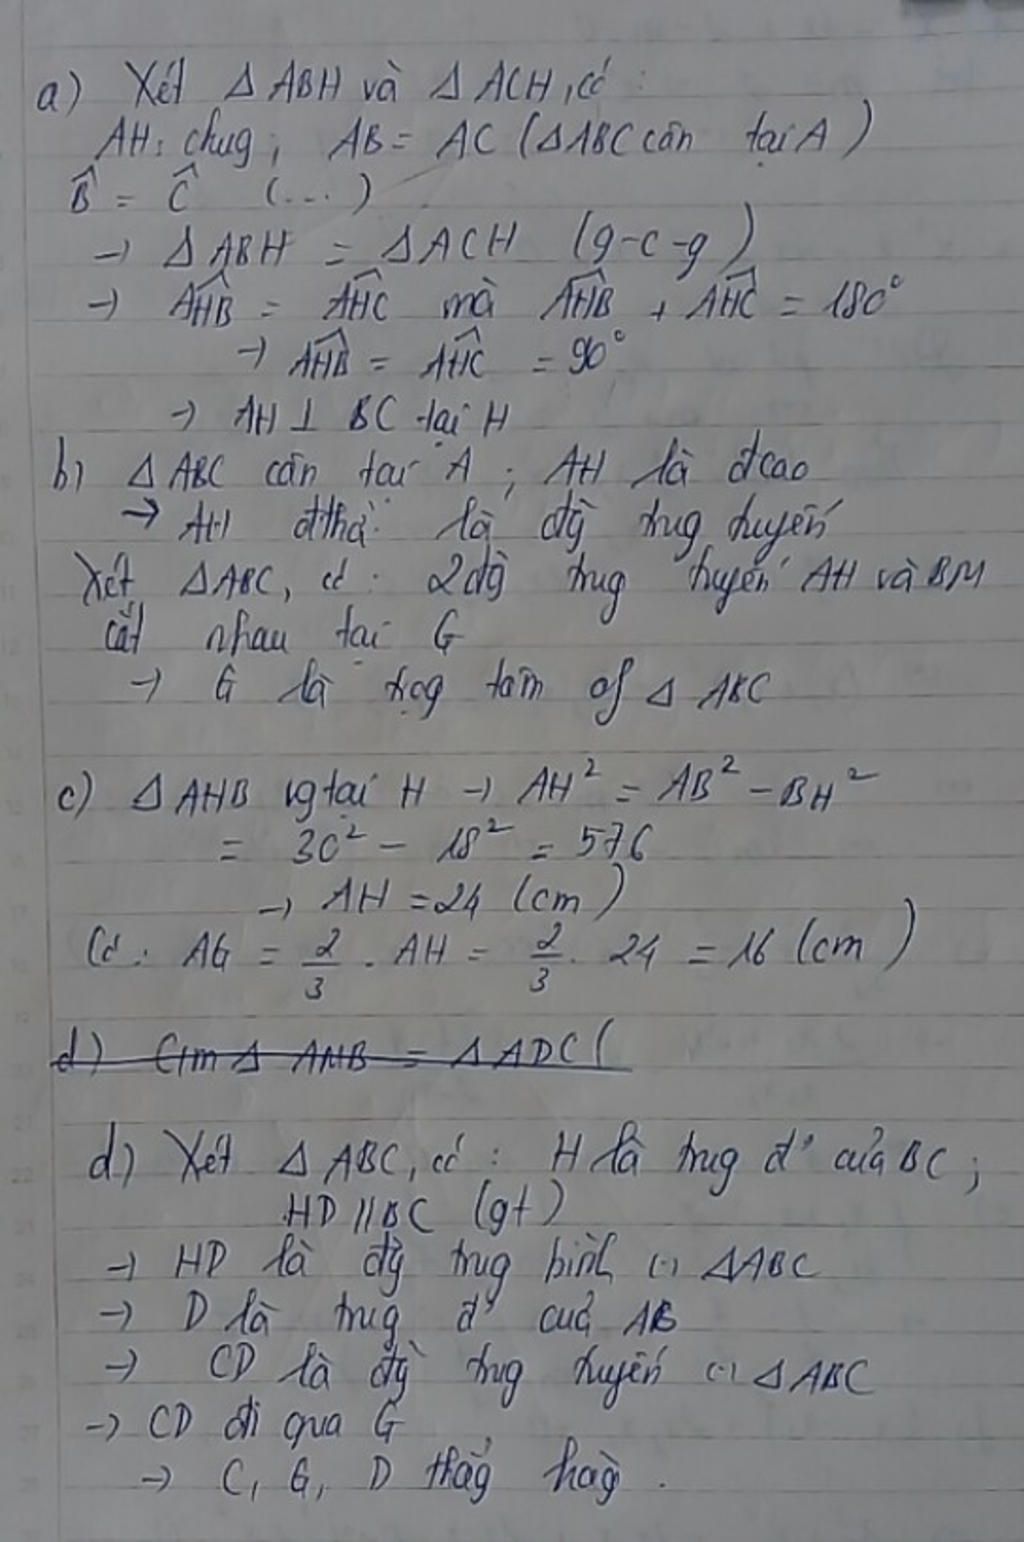 a) Xét Δ ABH và Δ ACH, có :
AH: chug ; AB = AC (ΔABC cân tại A)
B̂ = Ĉ (...)
→ Δ ABH = Δ ACH (g-c-g)
→ AHB̂ = AHĈ mà AHB̂ + AHĈ = 180°
→ AHB̂ = AHĈ = 90°
→ AH ⊥ BC tại H
b) Δ ABC cân tại A ; AH là đcao
→ AH đthờ là đg̀ trug tuyến
Xét ΔABC, có : 2 đg̀ trug tuyến AH và BM
cắt nhau tại G
→ G là trọg tâm of Δ ABC
c) Δ AHB vg tại H → AH² = AB² - BH²
= 30² - 18² = 576
→ AH = 24 (cm)
Có : AG = 2/3 . AH = 2/3 . 24 = 16 (cm)
d) Cm Δ AHB = Δ ADC (
d) Xét Δ ABC, có : H là trug đ' của BC ;
HD // BC (gt)
→ HD là đg̀ trug bình (-) ΔABC
→ D là trug đ' của AB
→ CD là đg̀ trug tuyến (-) ΔABC
→ CD đi qua G
→ C, G, D thẳg hàg .